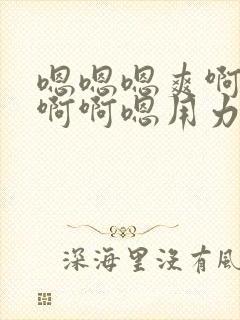 嗯嗯嗯爽啊
啊啊嗯用力
深海里没有风